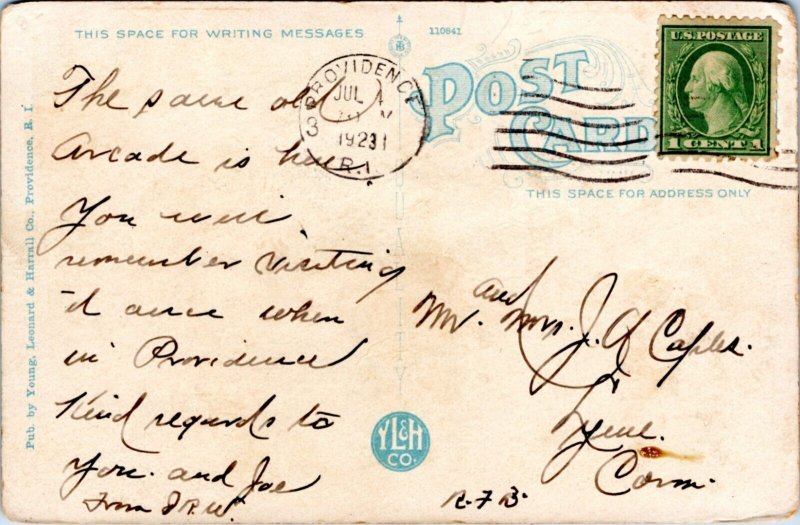 THIS SPACE FOR WRITING MESSAGES
110841
POST
CARD
THIS SPACE FOR ADDRESS ONLY
U.S. POSTAGE
1 CENT 1
PROVIDENCE
JUL
1923
R.I.
3
The same old
Arcade is here
You will
remember visiting
it once when
in Providence
Kind regards to
you. and Joe
From
and
Mr. Mrs. J. A Caples.
Lyme.
Conn.
R-7 B-
YL&H
CO.
Pub. by Young, Leonard & Harrall Co., Providence, R. I.